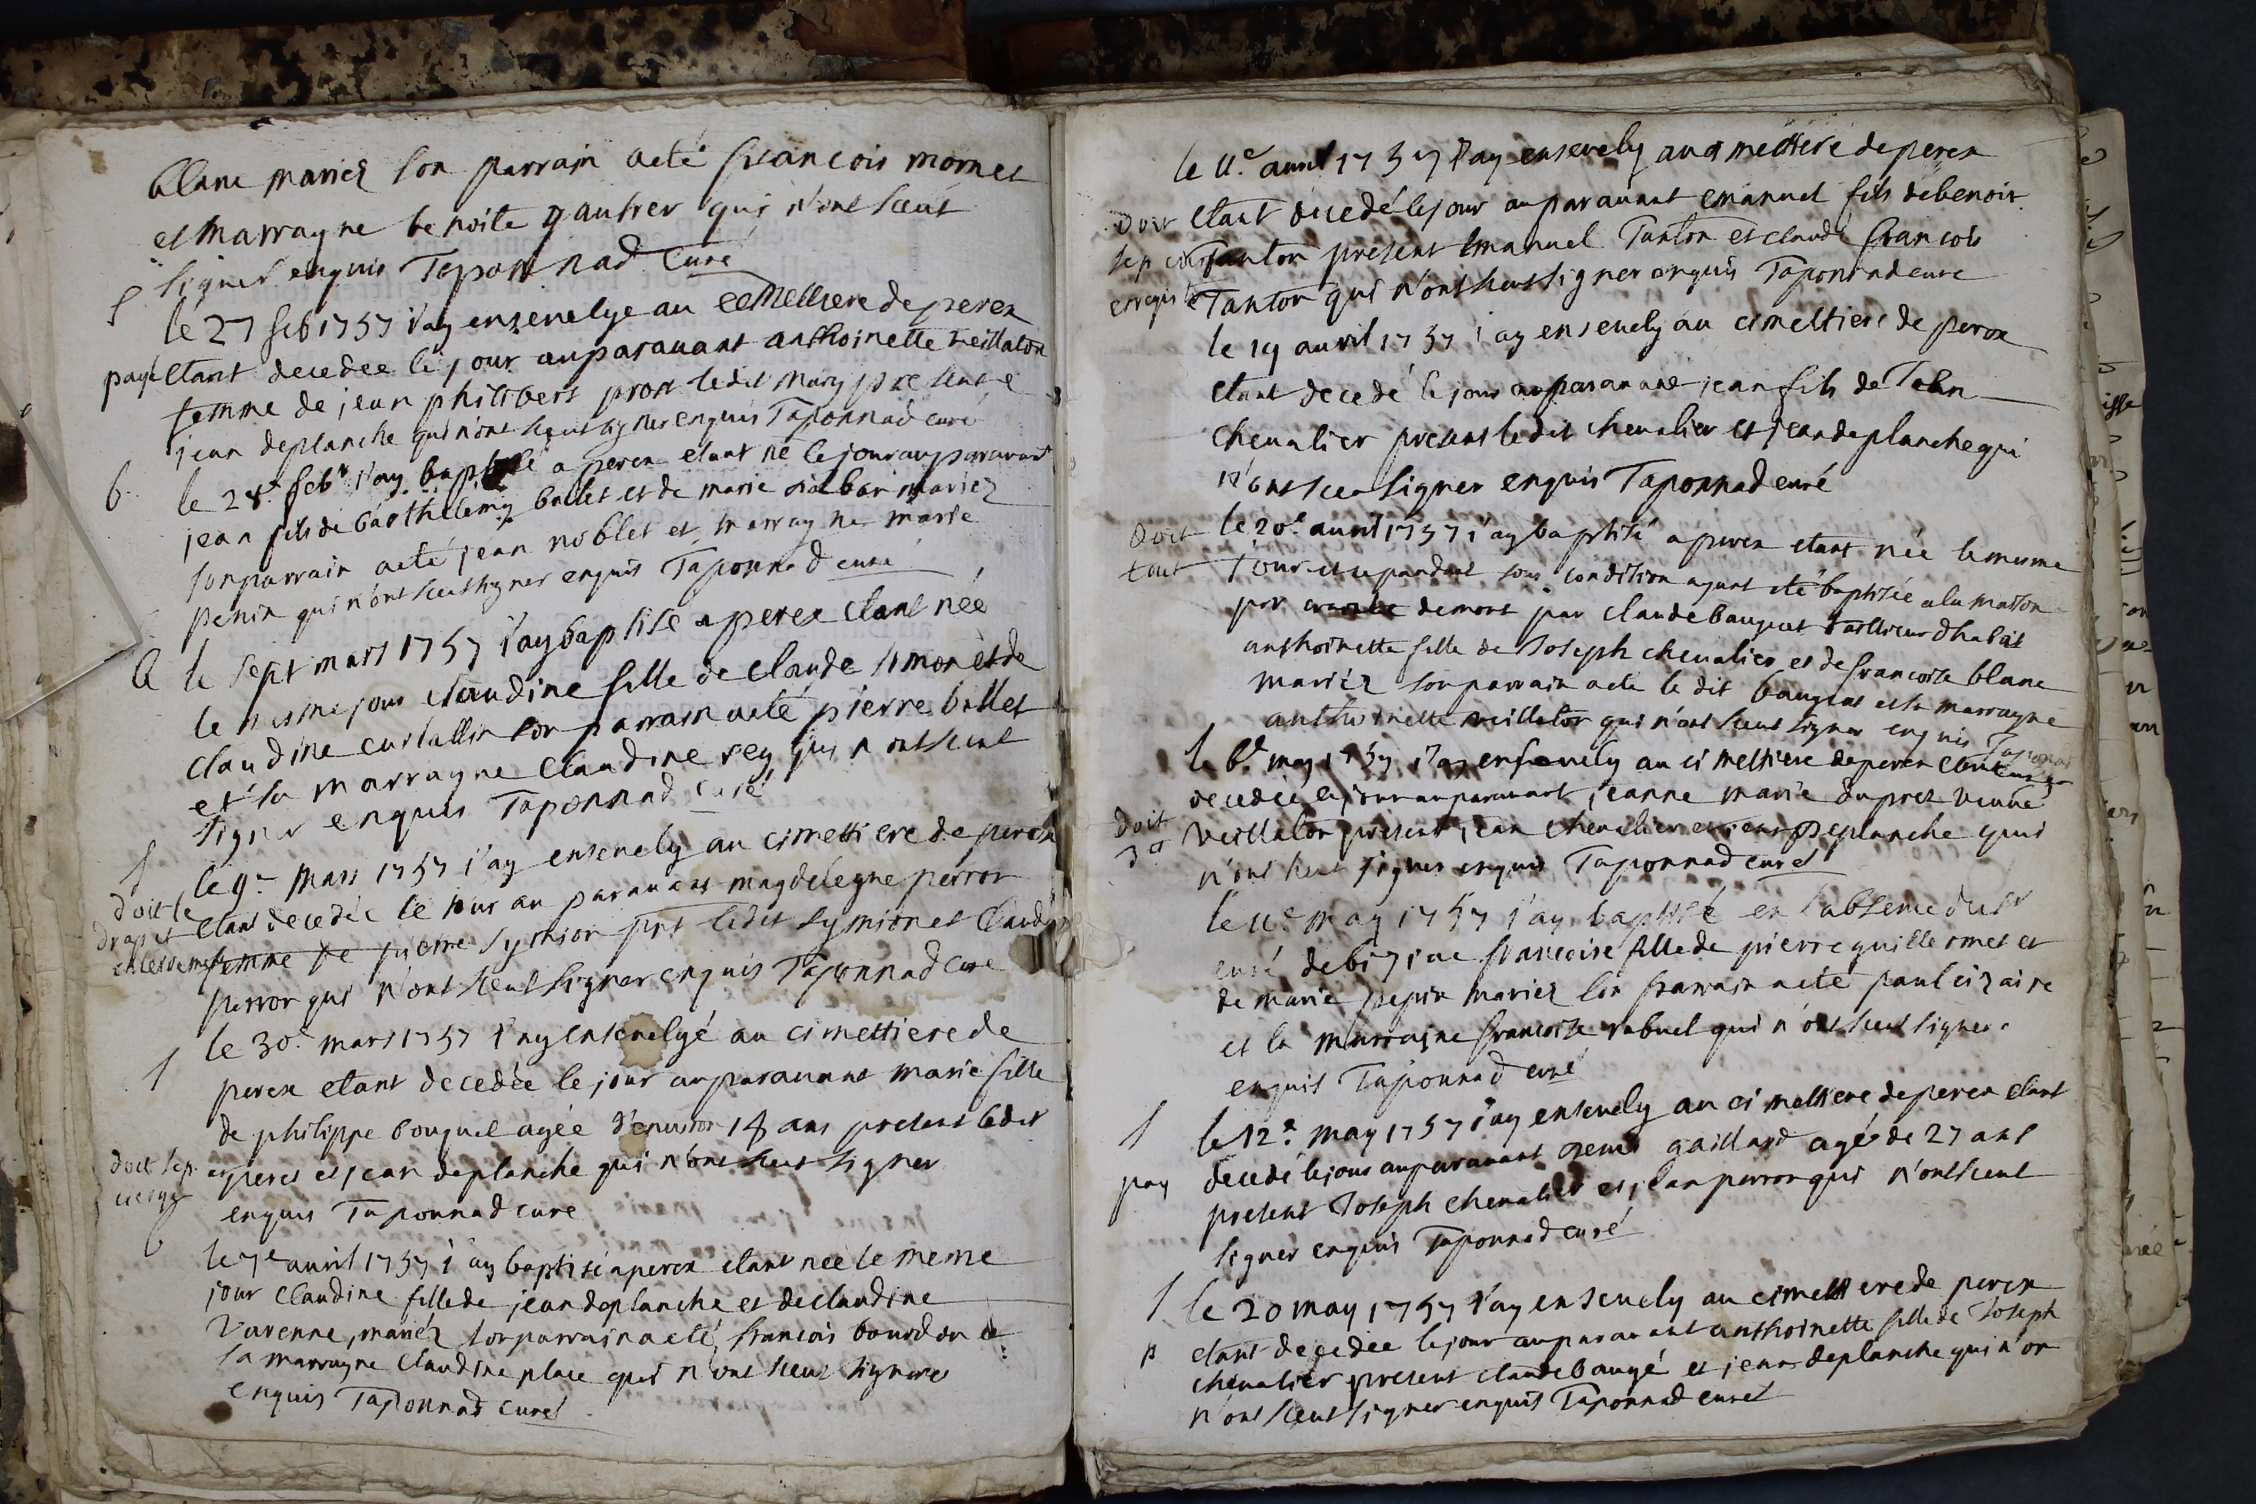 blanc mariez son parrain acté françois mornet
et marrayne benoite gautier qui n'ont sceut
signer enquis Taponnad Curé
S
le 27 feb 1757 i'ay ensevelye au cemettiere de perex
payé etant decedee le jour auparavant anthoinette veillaton
femme de jean philibert pron ledit mary present et
jean deplanche qui n'ont sceut signer enquis Taponnad curé
b
le 28e febr i'ay baptisé a perex etant né le jour auparavant
jean fils de barthelemy ballet et de marie mariez
son parrain acté jean noblet et marrayne marie
penin qui n'ont sceut signer enquis Taponnad curé
B le sept mars 1757 i'ay baptisé a perex etant née
le mesme jour claudine fille de claude simon et de
claudine curtallin son parrain acté pierre ballet
et sa marrayne claudine rey qui n'ont sceut
signer enquis Taponnad Curé
S
le 9e mars 1757 i'ay ensevely au cimettiere de perex
doit le etant decedée le jour auparavant magdelegne perron
drap et femme de pierre symion pnt ledit symion et claude
perron qui n'ont sceut signer enquis Taponnad Curé
S
le 30e mars 1757 i'ay ensevelyé au cimettiere de
perex etant decedée le jour auparavant marie fille
de philippe bouquel agée d'environ 18 ans present ledit
doit sep. peres et jean deplanche qui n'ont sceut signer
cierge
enquis Taponnad curé
b
le 7e avril 1757 i'ay baptisé a perex etant née le meme
jour claudine fille de jean deplanche et de claudine
varenne, mariéz son parrain acté françois bourdon et
sa marrayne claudine place qui n'ont sceut signere
enquis Taponnad curé
le 11e avril 1757 i'ay ensevely au cimettiere de perex
doit etant decedé le jour auparavant emanuel fils de benoit
sep Tanton present emanuel Tanton et claude françois
Tanton qui n'ont sceut signer enquis Taponnad curé
le 19 avril 1757 i'ay ensevely au cimettiere de perex
etant decedé le jour auparavant jean fils de Jean
chevalier present ledit chevalier et jean deplanche qui
n'ont sceu signer enquis Taponnad curé
doit le 20e avril 1757 i'ay baptisé a perex etant née le mesme
tout jour et cependant sous condition ayant eté baptisée a la maison
par de mort par claude baugeat tailleur dhabit
anthoinette fille de Joseph chevalier et de francoise blanc
mariéz son parrain acté le dit baugeat et sa marrayne
anthoinette veillaton qui n'ont sceut signer enquis Taponnad
le 6e may 1757 i'ay ensevely au cimettiere de perex etant
decedée le jour auparavant jeanne marie duprez veuve
doit veillaton present jean chevalier et jean deplanche qui
n'ont sceut signer enquis Taponnad curé
le 11e may 1757 i'ay baptisé en l'absence du sr
curé de françoise fille de pierre guillermet et
de marie pepin mariez son parrain acté paul cizaire
et la marrayne francoise rabuel qui n'ont sceut signer
enquis Taponnad curé
S le 12e may 1757 i'ay ensevely au cimettiere de perex etant
pay decedé le jour auparavant remi gaillard agé de 27 ans
present Joseph chevalier et jean perron qui n'ont sceut
signer enquis Taponnad curé
S le 20 may 1757 i'ay ensevely au cimettiere de perex
p etant decedée le jour auparavant anthoinette fille de Joseph
chevalier present claude baugé et jean deplanche qui n'on
n'ont sceut signer enquis Taponnad curé